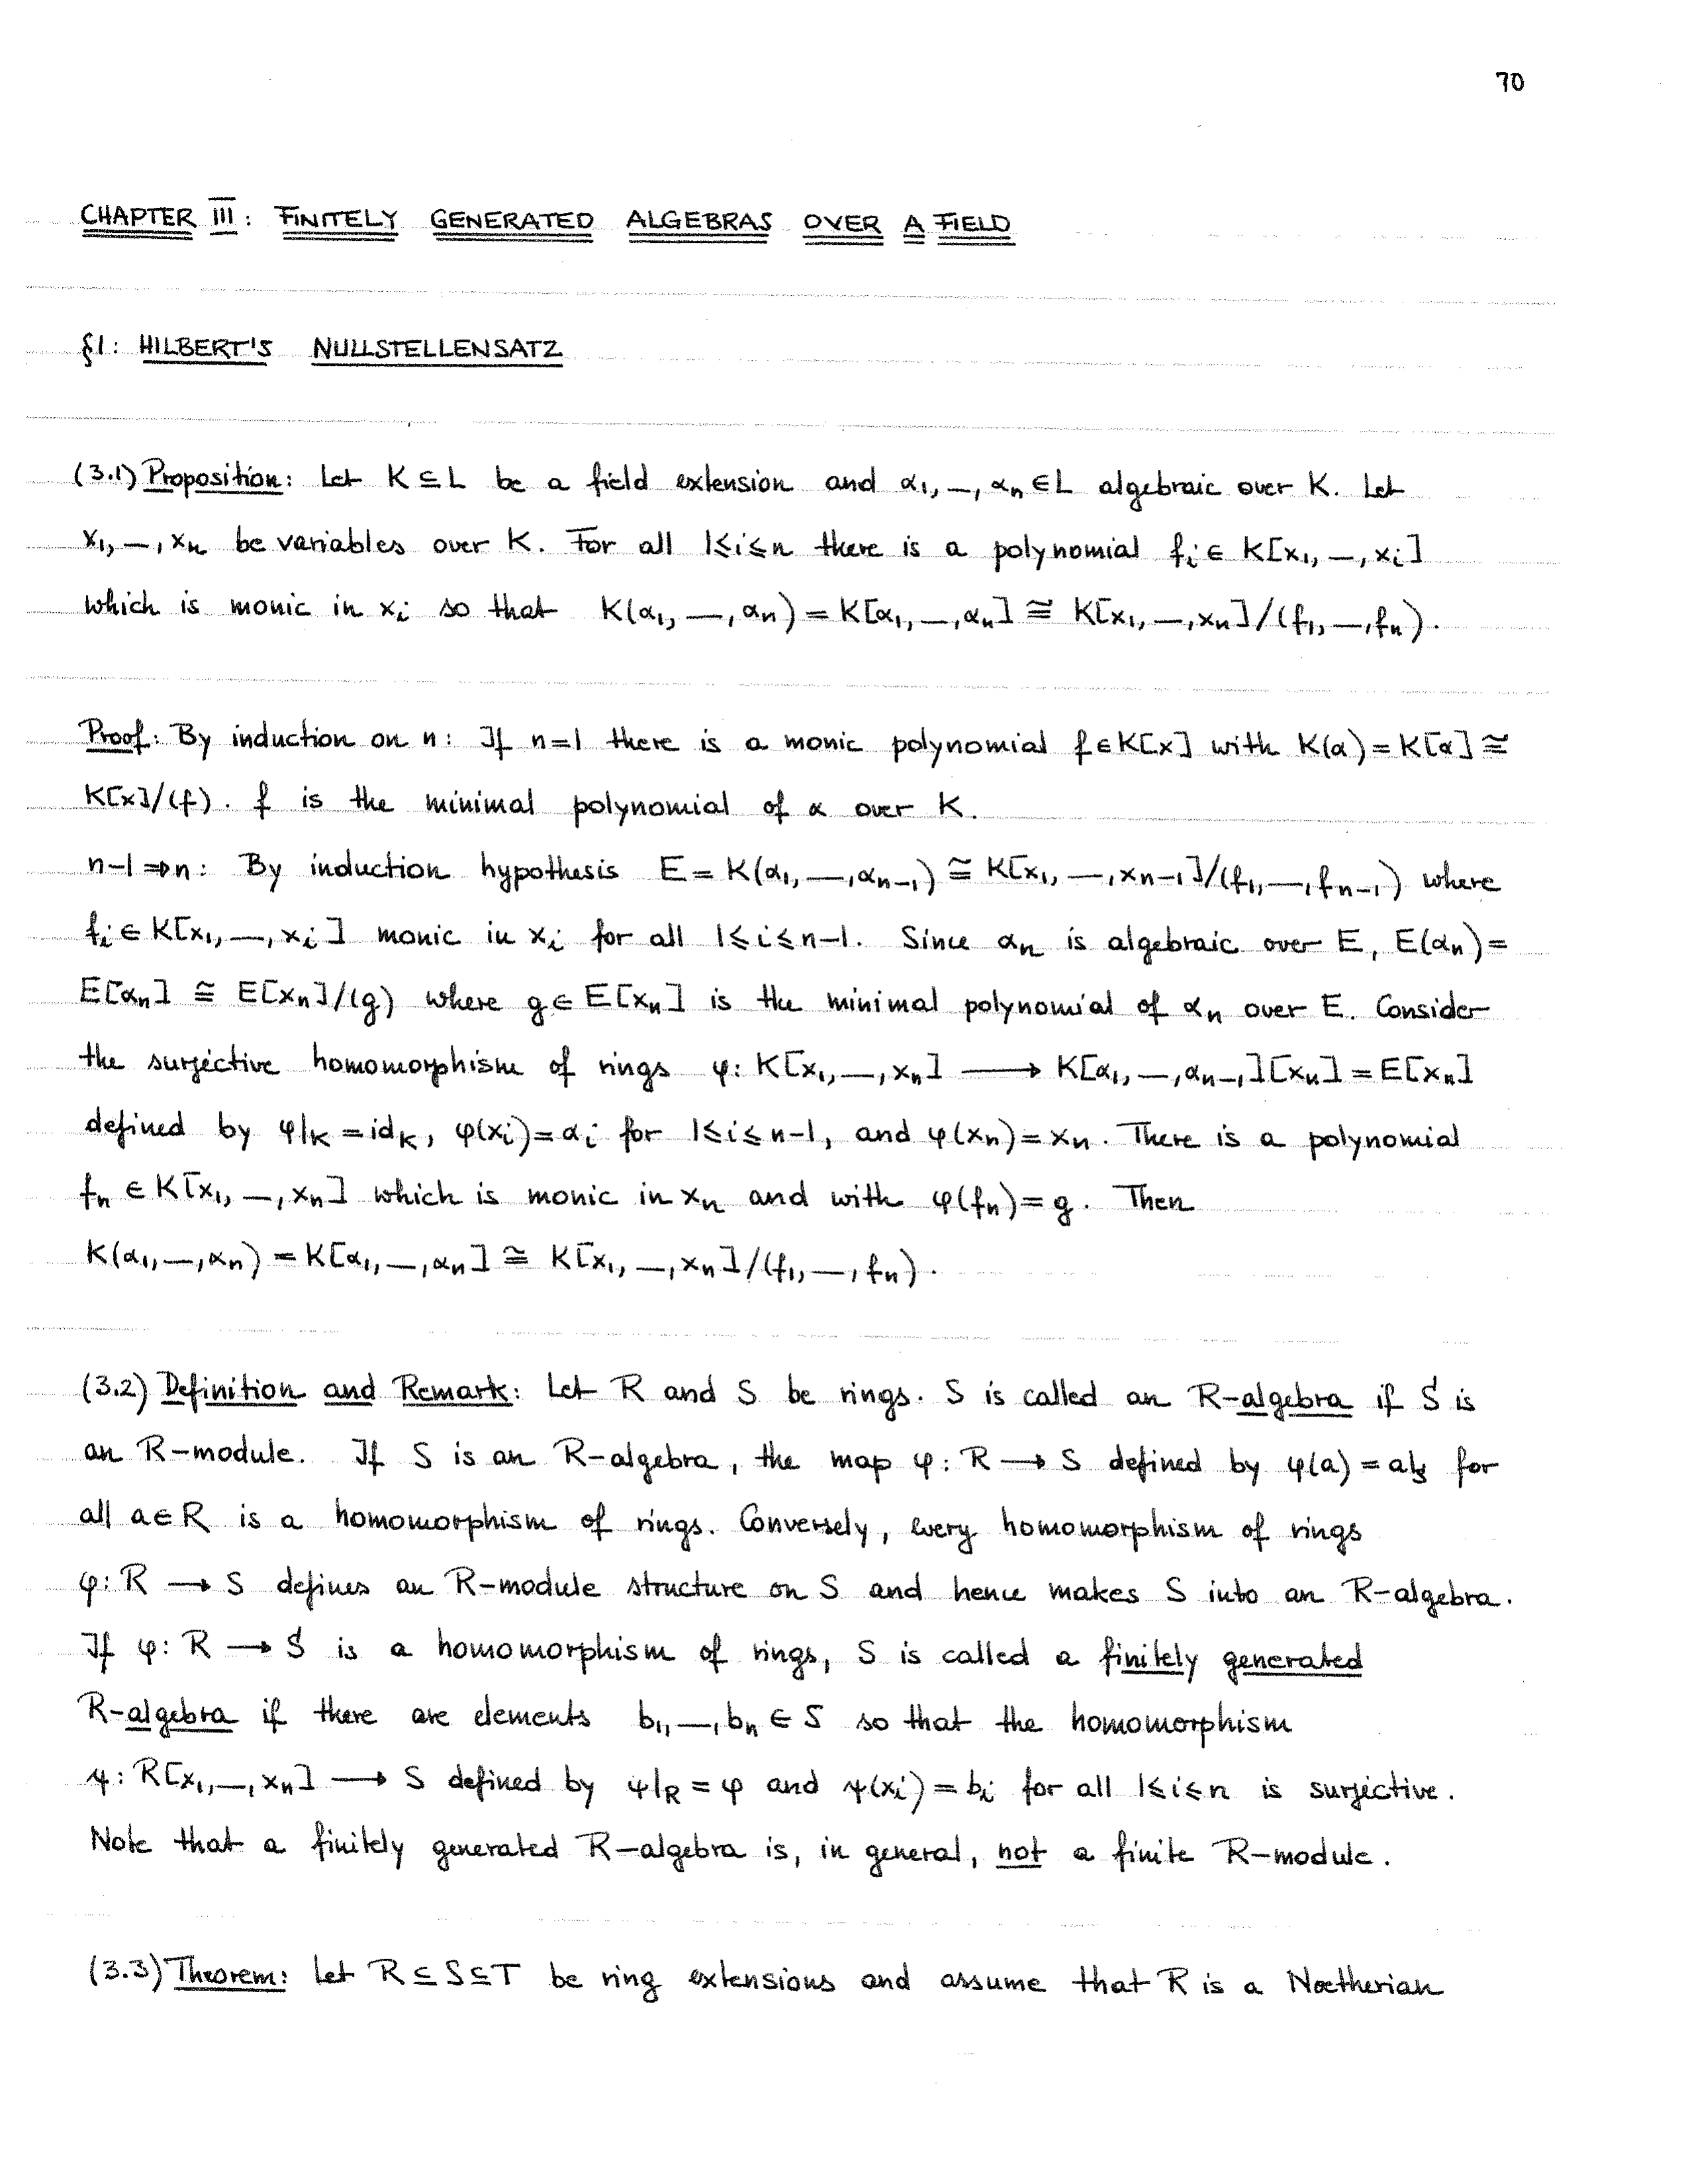 70
CHAPTER III: FINITELY GENERATED ALGEBRAS OVER A FIELD
§1: HILBERT'S NULLSTELLENSATZ
(3.1) Proposition: Let K ⊆ L be a field extension and α₁, —, αₙ ∈ L algebraic over K. Let
x₁, —, xₙ be variables over K. For all 1≤i≤n there is a polynomial fᵢ ∈ K[x₁, —, xᵢ]
which is monic in xᵢ so that K(α₁, —, αₙ) = K[α₁, —, αₙ] ≅ K[x₁, —, xₙ]/(f₁, —, fₙ).
Proof: By induction on n: If n=1 there is a monic polynomial f ∈ K[x] with K(α) = K[α] ≅
K[x]/(f). f is the minimal polynomial of α over K.
n-1 ⇒ n: By induction hypothesis E = K(α₁, —, αₙ₋₁) ≅ K[x₁, —, xₙ₋₁]/(f₁, —, fₙ₋₁) where
fᵢ ∈ K[x₁, —, xᵢ] monic in xᵢ for all 1≤i≤n-1. Since αₙ is algebraic over E, E(αₙ) =
E[αₙ] ≅ E[xₙ]/(g) where g ∈ E[xₙ] is the minimal polynomial of αₙ over E. Consider
the surjective homomorphism of rings φ: K[x₁, —, xₙ] ⟶ K[α₁, —, αₙ₋₁][xₙ] = E[xₙ]
defined by φ|_K = id_K, φ(xᵢ) = αᵢ for 1≤i≤n-1, and φ(xₙ) = xₙ. There is a polynomial
fₙ ∈ K[x₁, —, xₙ] which is monic in xₙ and with φ(fₙ) = g. Then
K(α₁, —, αₙ) = K[α₁, —, αₙ] ≅ K[x₁, —, xₙ]/(f₁, —, fₙ).
(3.2) Definition and Remark: Let R and S be rings. S is called an R-algebra if S is
an R-module. If S is an R-algebra, the map φ: R ⟶ S defined by φ(a) = a1_S for
all a ∈ R is a homomorphism of rings. Conversely, every homomorphism of rings
φ: R ⟶ S defines an R-module structure on S and hence makes S into an R-algebra.
If φ: R ⟶ S is a homomorphism of rings, S is called a finitely generated
R-algebra if there are elements b₁, —, bₙ ∈ S so that the homomorphism
ψ: R[x₁, —, xₙ] ⟶ S defined by ψ|_R = φ and ψ(xᵢ) = bᵢ for all 1≤i≤n is surjective.
Note that a finitely generated R-algebra is, in general, not a finite R-module.
(3.3) Theorem: Let R ⊆ S ⊆ T be ring extensions and assume that R is a Noetherian